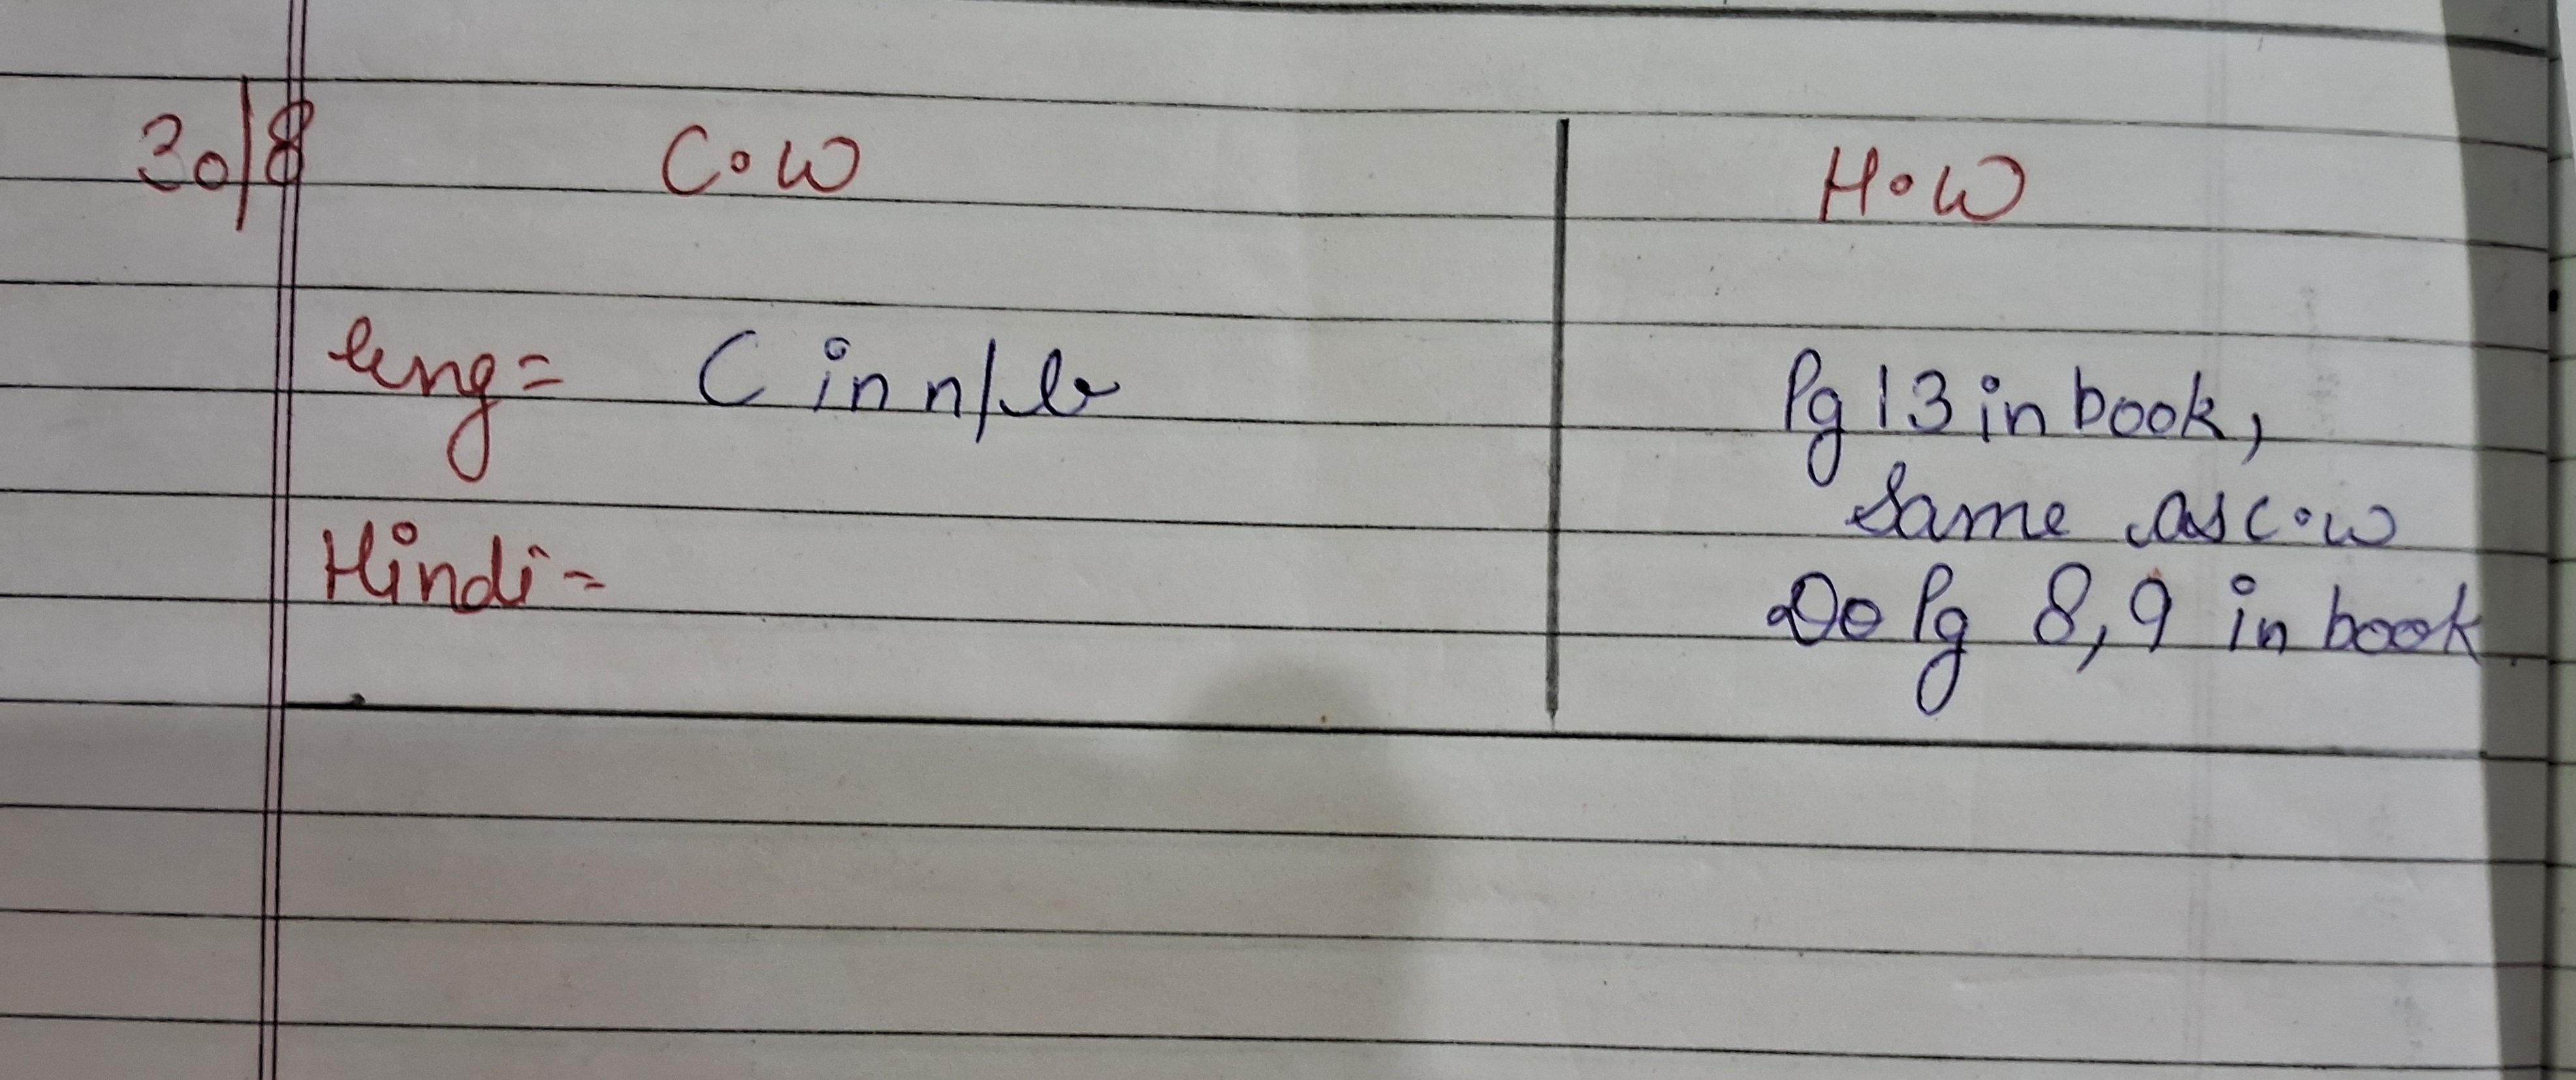 30/8 C.W H.W
Eng= C in n/b Pg 13 in book,
Same as C.W
Hindi- Do Pg 8,9 in book